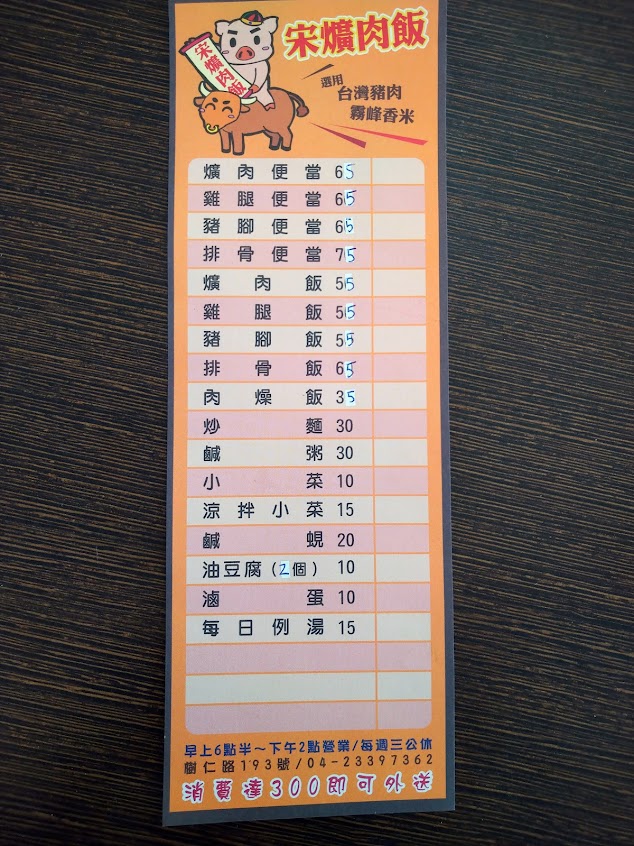 宋爌肉飯
宋爌肉飯
選用
台灣豬肉
霧峰香米
爌肉便當 65
雞腿便當 65
豬腳便當 65
排骨便當 75
爌肉飯 55
雞腿飯 55
豬腳飯 55
排骨飯 65
肉燥飯 35
炒麵 30
鹹粥 30
小菜 10
涼拌小菜 15
鹹蜆 20
油豆腐(2個) 10
滷蛋 10
每日例湯 15
早上6點半~下午2點營業/每週三公休
樹仁路193號/04-23397362
消費達300即可外送